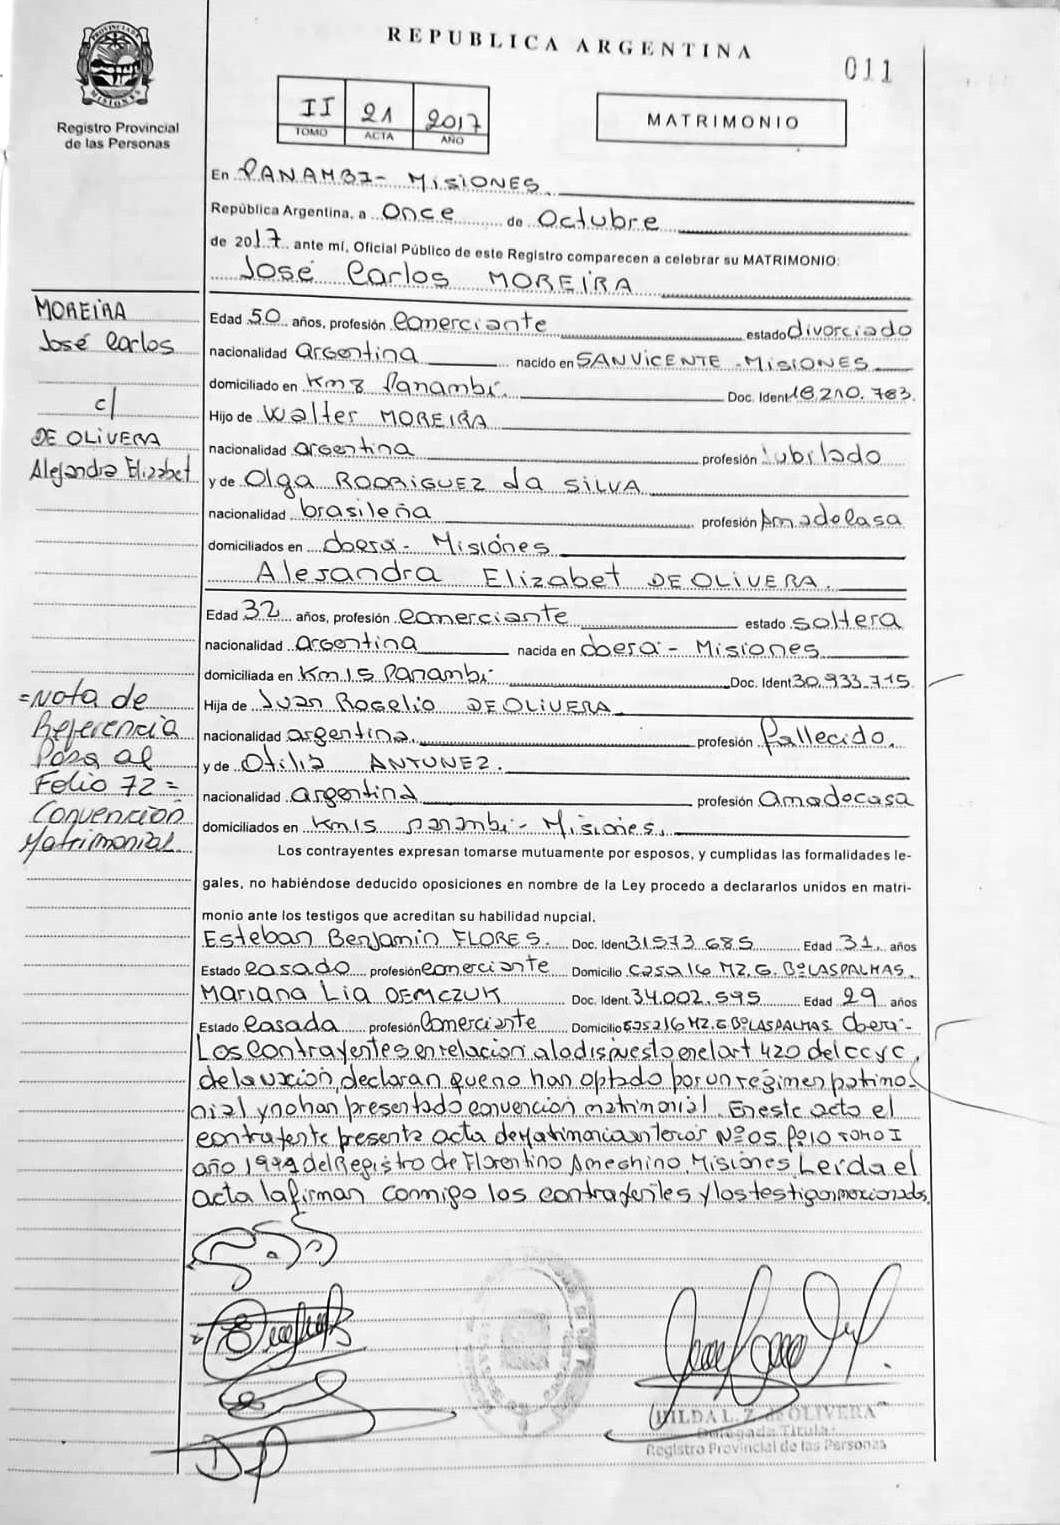 REPUBLICA ARGENTINA
011
PROVINCIA DE MISIONES
Registro Provincial
de las Personas
II 21 2017
TOMO ACTA AÑO
MATRIMONIO
En PANAMBI - MISIONES
República Argentina, a once de Octubre
de 2017 ante mí, Oficial Público de este Registro comparecen a celebrar su MATRIMONIO:
José Carlos MOREIRA
Edad 50 años, profesión comerciante estado divorciado
nacionalidad argentina nacido en SAN VICENTE - MISIONES
domiciliado en Km 8 Panambi. Doc. Ident 18.210.783.
Hijo de Walter MOREIRA
nacionalidad argentina profesión jubilado
y de Olga RODRIGUEZ da SILVA
nacionalidad brasileña profesión Amadecasa
domiciliados en Oberá - Misiones
Alejandra Elizabet DE OLIVERA.
Edad 32 años, profesión comerciante estado soltera
nacionalidad argentina nacida en Oberá - Misiones
domiciliada en Km 15 Panambi Doc. Ident 30.933.715
Hija de Juan Rogelio DE OLIVERA
nacionalidad argentina. profesión fallecido.
y de Otilia ANTUNEZ.
nacionalidad argentina profesión amadecasa
domiciliados en Km 15 Panambi - Misiones.
Los contrayentes expresan tomarse mutuamente por esposos, y cumplidas las formalidades le-
gales, no habiéndose deducido oposiciones en nombre de la Ley procedo a declararlos unidos en matri-
monio ante los testigos que acreditan su habilidad nupcial.
Esteban Benjamin FLORES. Doc. Ident 31573 685 Edad 31. años
Estado casado profesión comerciante Domicilio casa 16 MZ. G. Bº LAS PALMAS.
Mariana Lia DEMCZUK Doc. Ident. 34.002.595 Edad 29 años
Estado casada profesión comerciante Domicilio casa 16 MZ. G Bº LAS PALMAS Oberá -
Los contrayentes en relacion a lo dispuesto en el art 420 del ccyc.
de la nación, declaran que no han optado por un regimen patimo-
nial y no han presentado convención matrimonial. En este acto el
contrayente presenta acta de matrimonio anterior Nº 05 Fº 10 TOMO I
año del Registro de Florentino Ameghino. Misiones, Leida el
acta la firman conmigo los contrayentes y los testigos mencionados.
MOREIRA
José Carlos
c/
DE OLIVERA
Alejandra Elizabet
=Nota de
Referencia
Pasa al
Folio 72 =
Convención
Matrimonial
HILDA L. Z. de OLIVERA
Delegada Titular
Registro Provincial de las Personas